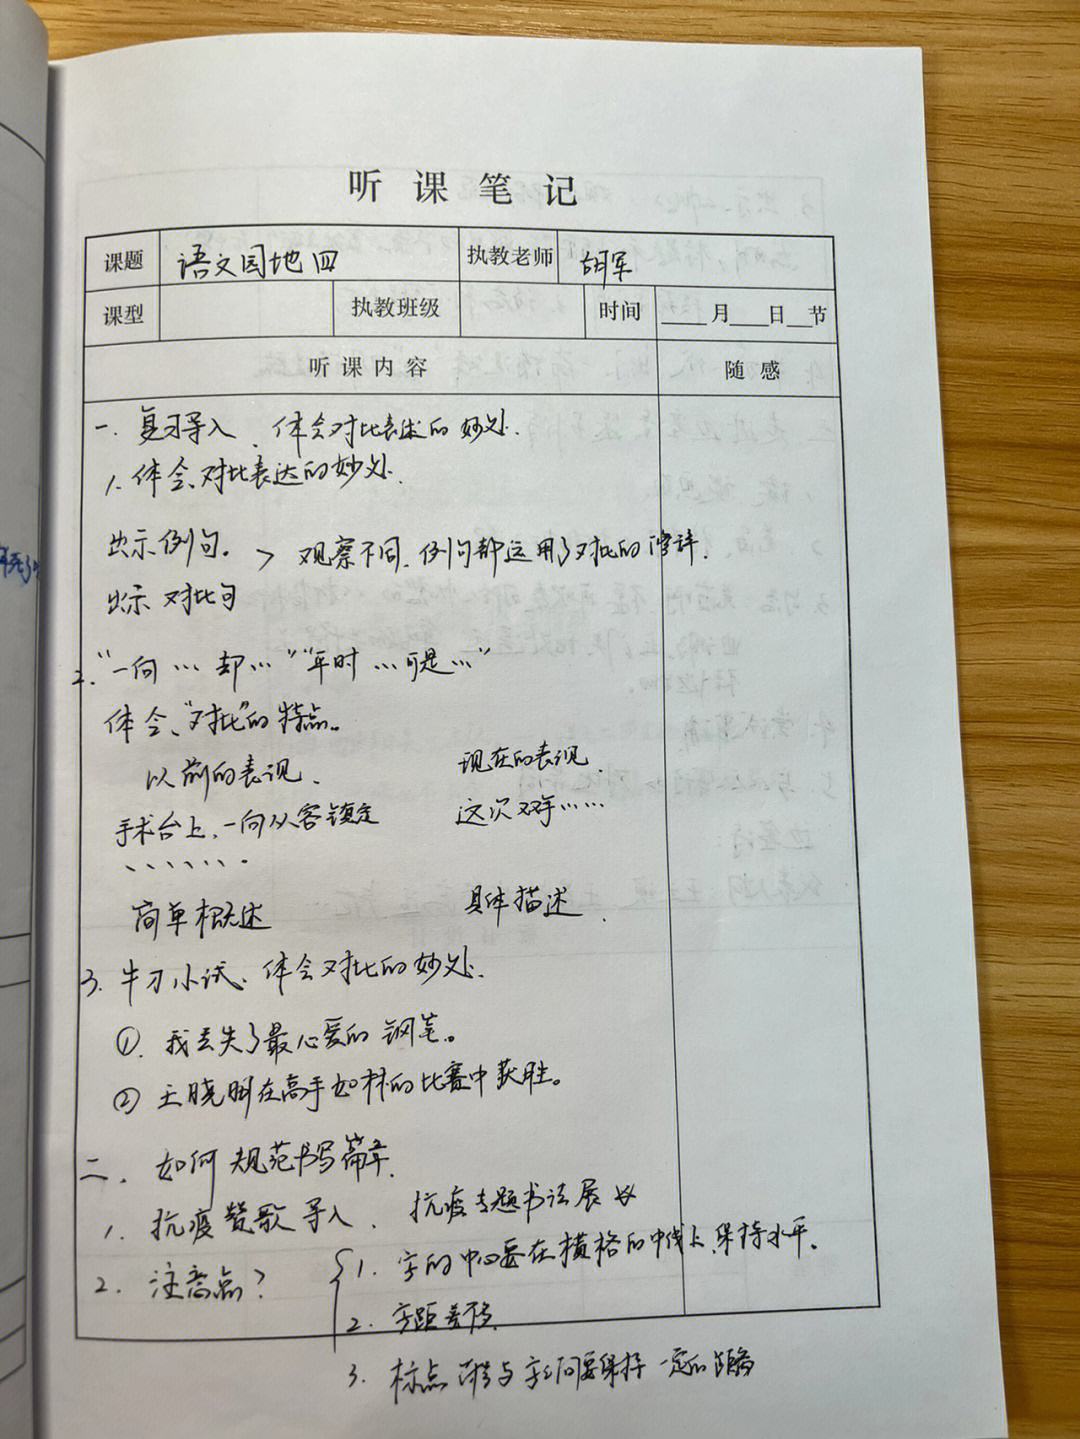 听课笔记
课题 语文园地四 执教老师 胡军
课型 执教班级 时间 ____月____日__节
听课内容 随感
一. 复习导入、体会对比表述的妙处.
1. 体会对比表达的妙处.
出示例句。 > 观察不同, 例句都运用了对比的修辞.
出示对比句
2. “一向…却…” “平时…可是…”
体会“对比”的特点。
以前的表现、 现在的表现.
手术台上, 一向从容镇定 这次双手……
、、、、、、.
简单概述 具体描述.
3. 牛刀小试、体会对比的妙处.
①. 我丢失了最心爱的钢笔。
② 王晓明在高手如林的比赛中获胜。
二. 如何规范书写篇章.
1. 抗疫赞歌导入. 抗疫专题书法展
2. 注意点?
1. 字的中心要在横格的中线上, 保持水平.
2. 字距
3. 标点符号与字之间要保持一定的距离